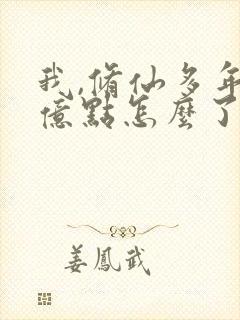 我,脩仙多年
億點怎麼了
姜鳳武